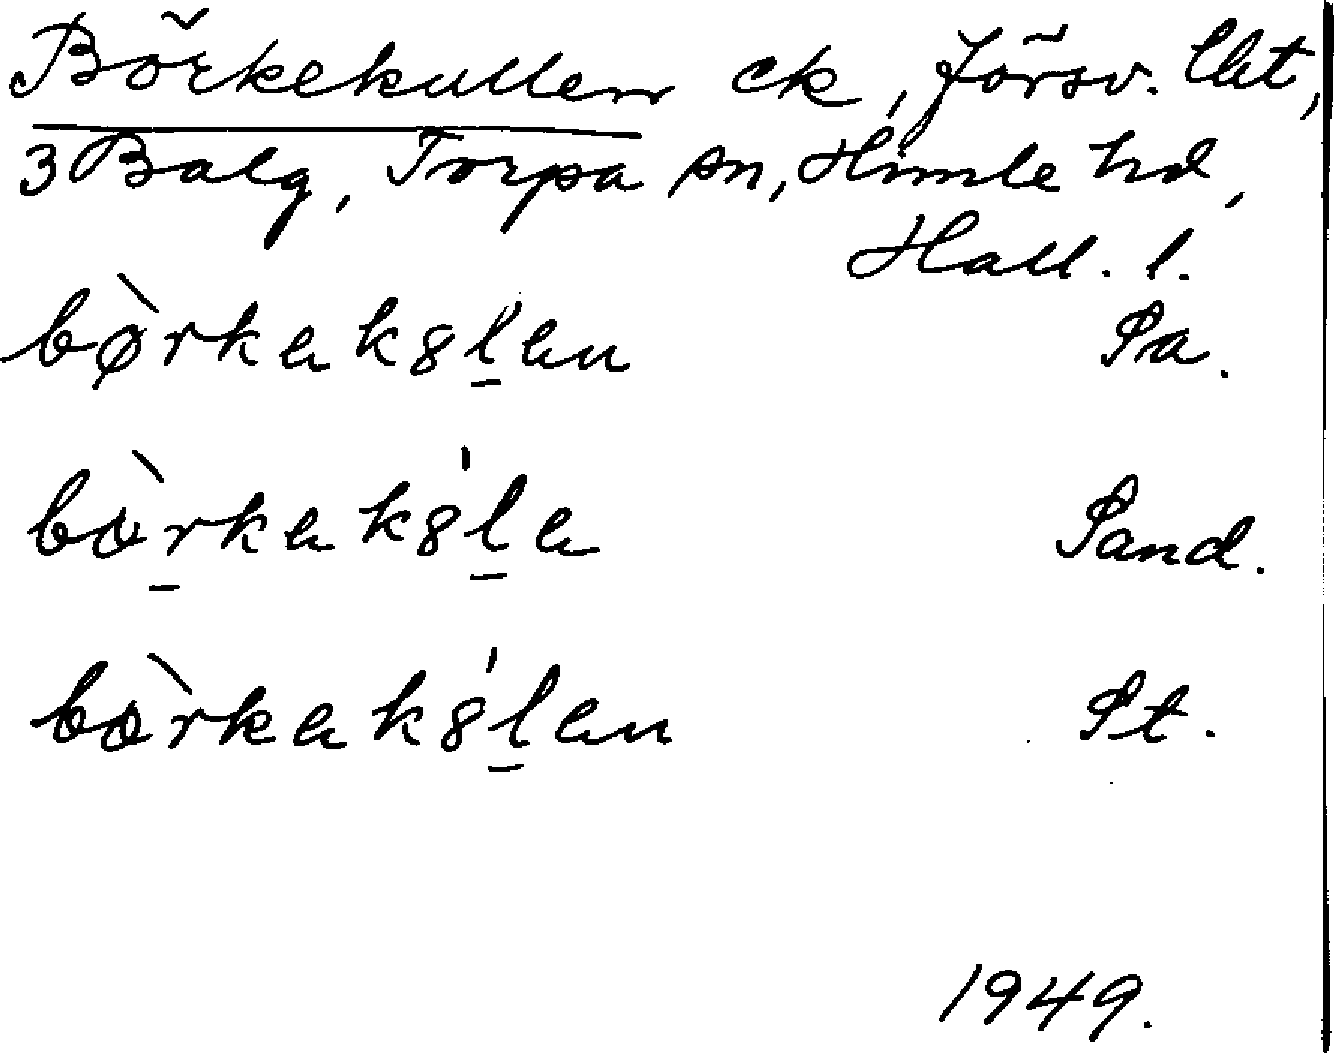 Börkekullen ek, försv. Ekt,
3 Balg, Torpa sn, Himle hd,
Hall. l.
bø̀rkekȣl̠en Pa.
bòr̠kekȣ̍l̠e Pand.
bòrkekȣ̍l̠en Pt.
1949.